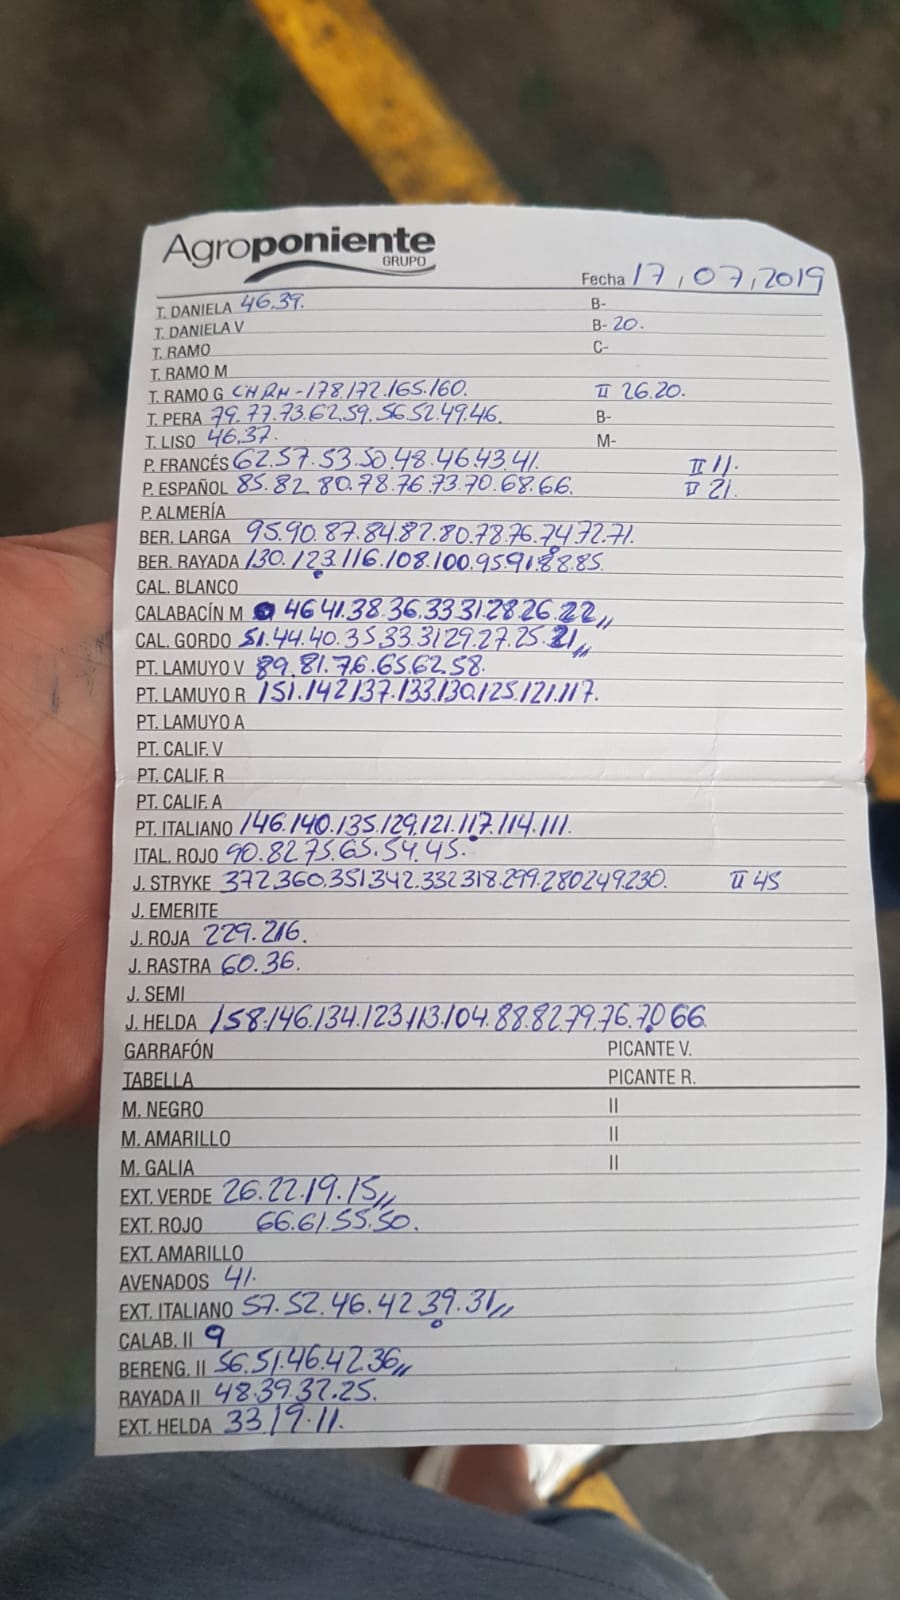 Agroponiente
GRUPO
Fecha 17,07,2019
T. DANIELA 46.39. B-
T. DANIELA V B- 20.
T. RAMO C-
T. RAMO M
T. RAMO G CHRM-178.172.165.160. II 26.20.
T. PERA 79.77.73.62.59.56.52.49.46. B-
T. LISO 46.37. M-
P. FRANCÉS 62.57.53.50.48.46.43.41. II 11.
P. ESPAÑOL 85.82.80.78.76.73.70.68.66. II 21.
P. ALMERÍA
BER. LARGA 95.90.87.84.82.80.78.76.74.72.71.
BER. RAYADA 130.123.116.108.100.95.91.88.85.
CAL. BLANCO
CALABACÍN M 46.41.38.36.33.31.28.26.22,,
CAL. GORDO 51.44.40.35.33.31.29.27.25.21,,
PT. LAMUYO V 89.81.76.65.62.58.
PT. LAMUYO R 151.142.137.133.130.125.121.117.
PT. LAMUYO A
PT. CALIF. V
PT. CALIF. R
PT. CALIF. A
PT. ITALIANO 146.140.135.129.121.117.114.111.
ITAL. ROJO 90.82.75.65.54.45.
J. STRYKE 372.360.351.342.332.318.299.280.249.230. II 45
J. EMERITE
J. ROJA 229.216.
J. RASTRA 60.36.
J. SEMI
J. HELDA 158.146.134.123.113.104.88.82.79.76.70.66
GARRAFÓN PICANTE V.
TABELLA PICANTE R.
M. NEGRO II
M. AMARILLO II
M. GALIA II
EXT. VERDE 26.22.19.15,,
EXT. ROJO 66.61.55.50.
EXT. AMARILLO
AVENADOS 41.
EXT. ITALIANO 57.52.46.42.39.31,,
CALAB. II 9
BERENG. II 56.51.46.42.36,,
RAYADA II 48.39.32.25.
EXT. HELDA 33.19.11.